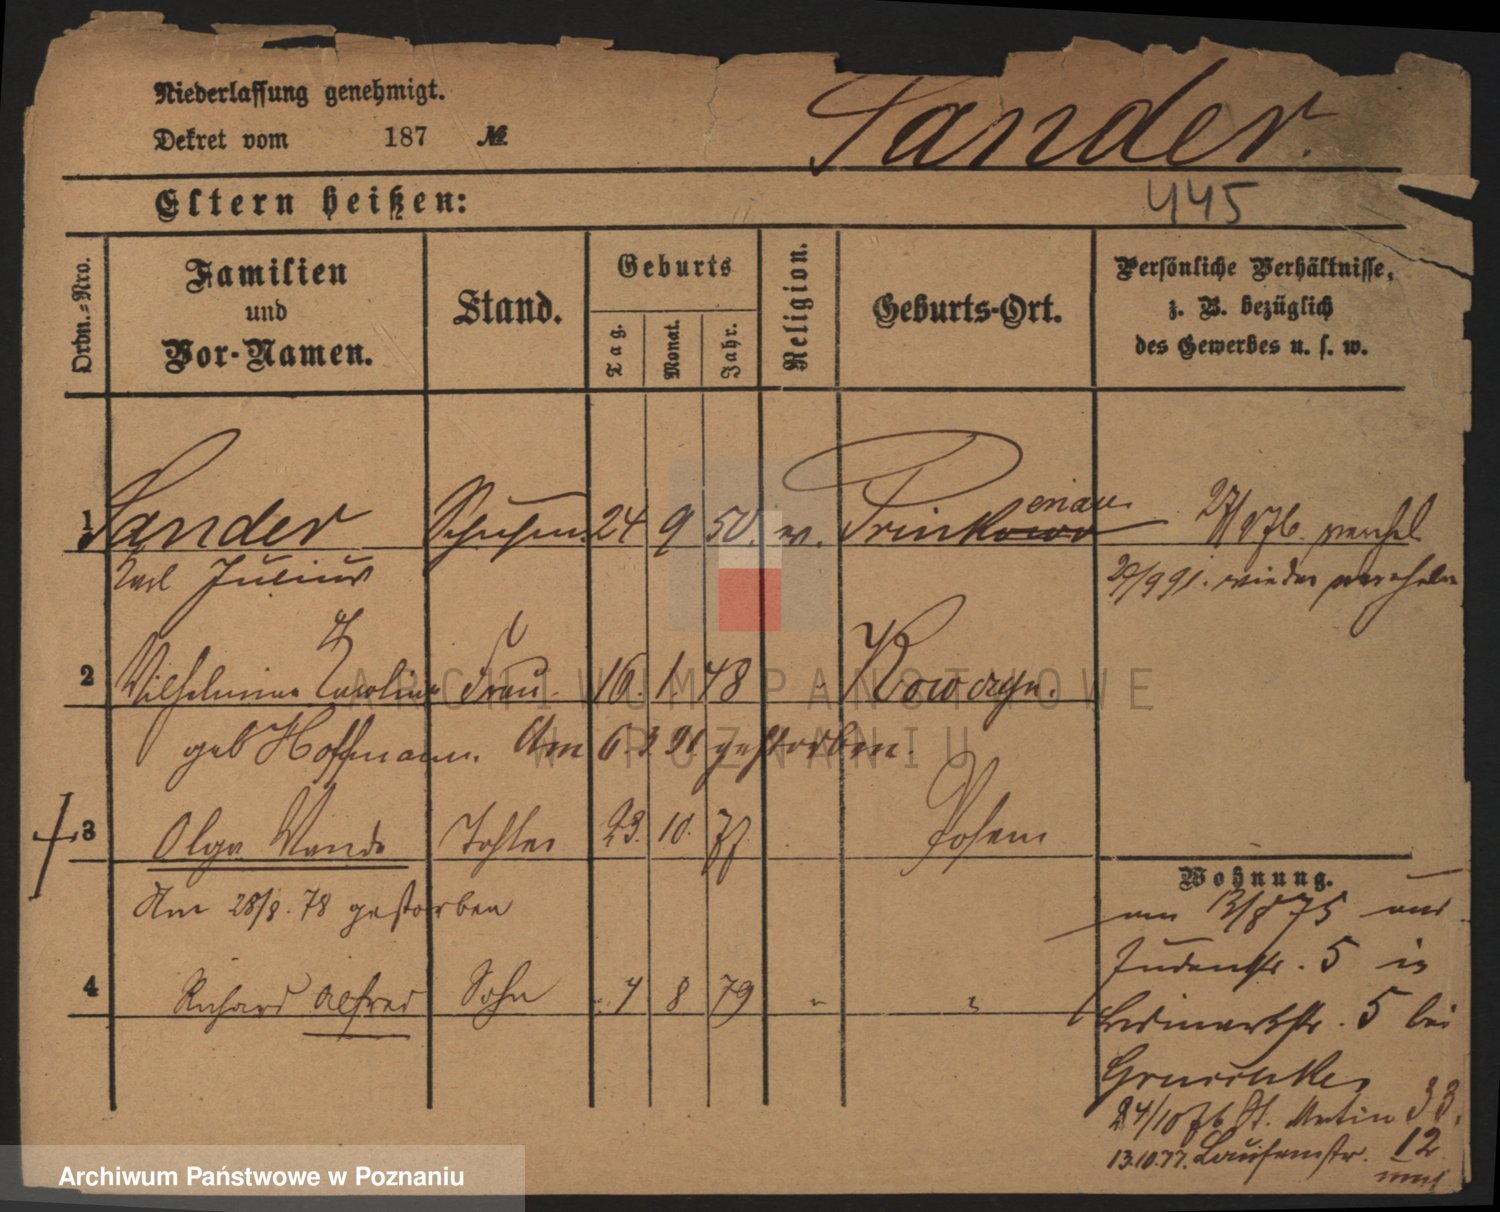 Niederlassung genehmigt.
Dekret vom 187 №
Sander.
Eltern heißen:
445
Ordn.-Nro.
Familien
und
Vor-Namen.
Stand.
Geburts
Tag.
Monat.
Jahr.
Religion.
Geburts-Ort.
Persönliche Verhältnisse,
z. B. bezüglich
des Gewerbes u. s. w.
1 Sander 24 9 50. ev.
Karl Julius
27/ 76. verehel.
29/9 91. wieder verehel
2 Wilhelmine Karoline Frau. 16. 1. 48
geb Hoffmann. Am 6. 3 91. gestorben.
3 Olga Wanda Tochter 23. 10. 77 Posen
Am 28/8. 78 gestorben
4 Richard Alfred Sohn 4 8 79 " "
Wohnung.
am 13/8 75 aus
Judenstr. 5 in
5 bei
24/10 76 St. Martin 33.
13.10.77. Louisenstr. 12
ARCHIWUM PAŃSTWOWE
W POZNANIU
Archiwum Państwowe w Poznaniu